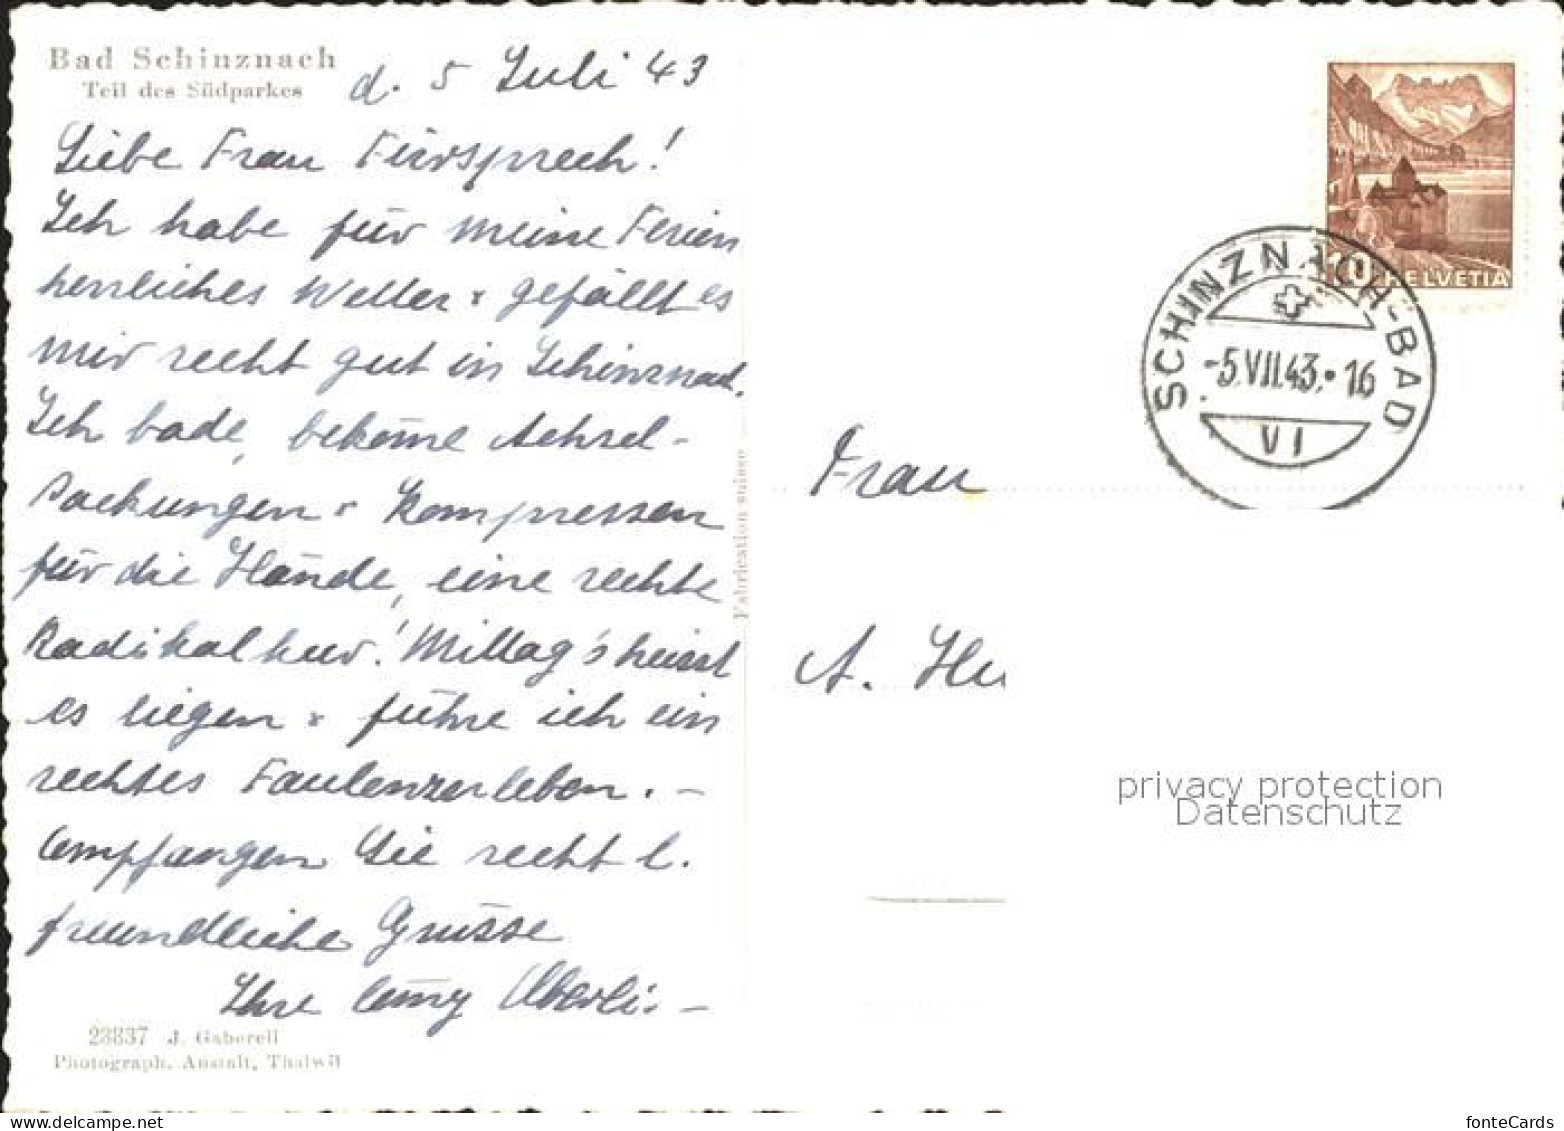 Bad Schinznach
Teil des Südparkes
d. 5 Juli 43
Liebe Frau Fürsprech!
Ich habe für meine Ferien
herrliches Wetter & gefällt es
mir recht gut in Schinznach.
Ich bade, bekome Achsel-
Packungen & Kompressen
für die Hände, eine rechte
Radikalkur! Mittag's heisst
es liegen & führe ich ein
rechtes Faulenzerleben. -
Empfangen Sie recht l.
freundliche Grüsse
Ihre Emmy Oberli. -
23837 J. Gaberell
Photograph. Anstalt, Thalwil
Fabrication suisse
10 HELVETIA
SCHINZNACH-BAD
-5.VII.43.•16
VI
Frau
A. Hu
privacy protection
Datenschutz
fonteCards